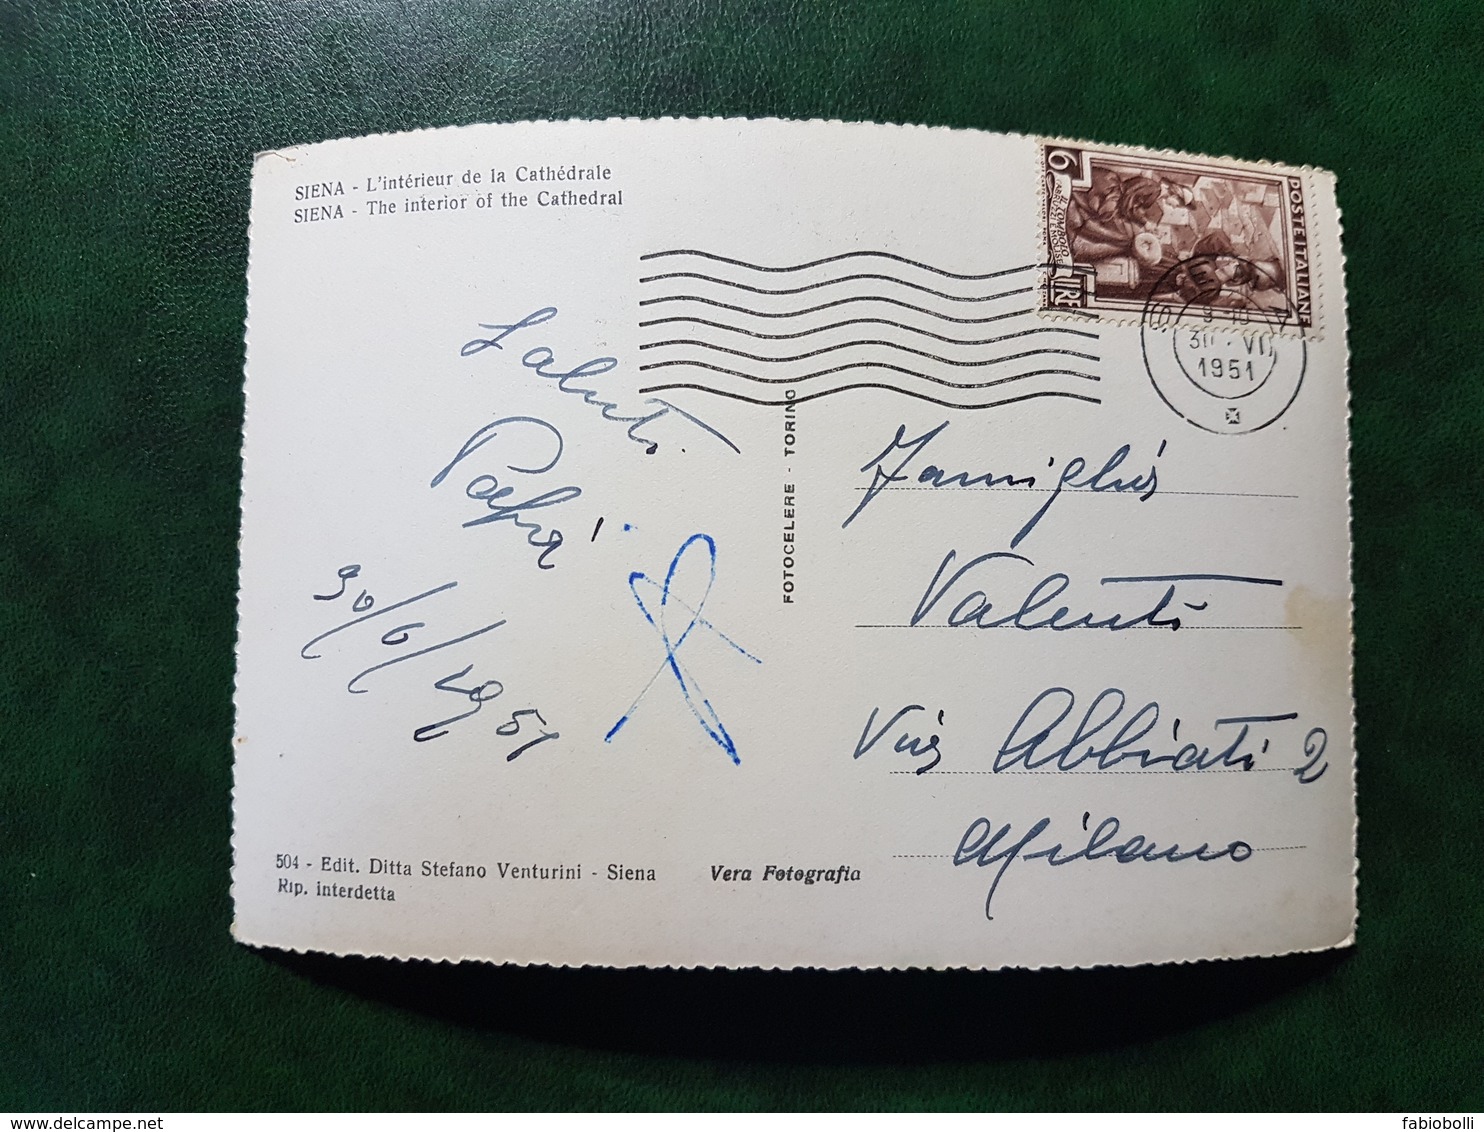 SIENA - L'intérieur de la Cathédrale
SIENA - The interior of the Cathedral
6
LIRE
POSTE ITALIANE
IL TOMBOLO
ABRUZZI E MOLISE
SIENA
30 . VI
1951
Saluti
Papà
30/6/1951
FOTOCELERE - TORINO
Famiglia
Valenti
Via Abbiati 2
Milano
504 - Edit. Ditta Stefano Venturini - Siena
Rip. interdetta
Vera Fotografia
fabiobolli